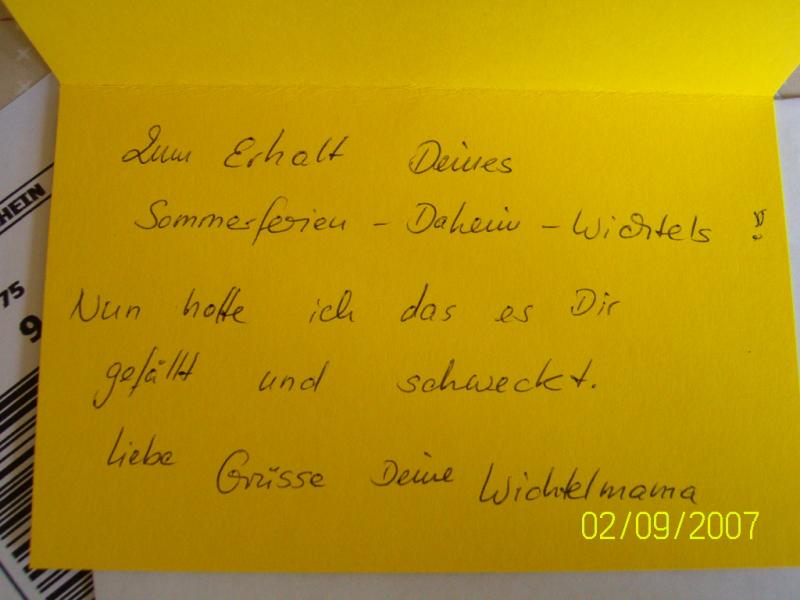 Zum Erhalt Deines
Sommerferien - Daheim - Wichtels !
Nun hoffe ich das es Dir
gefällt und schmeckt.
liebe Grüsse Deine Wichtelmama
02/09/2007
HEIN
75
9